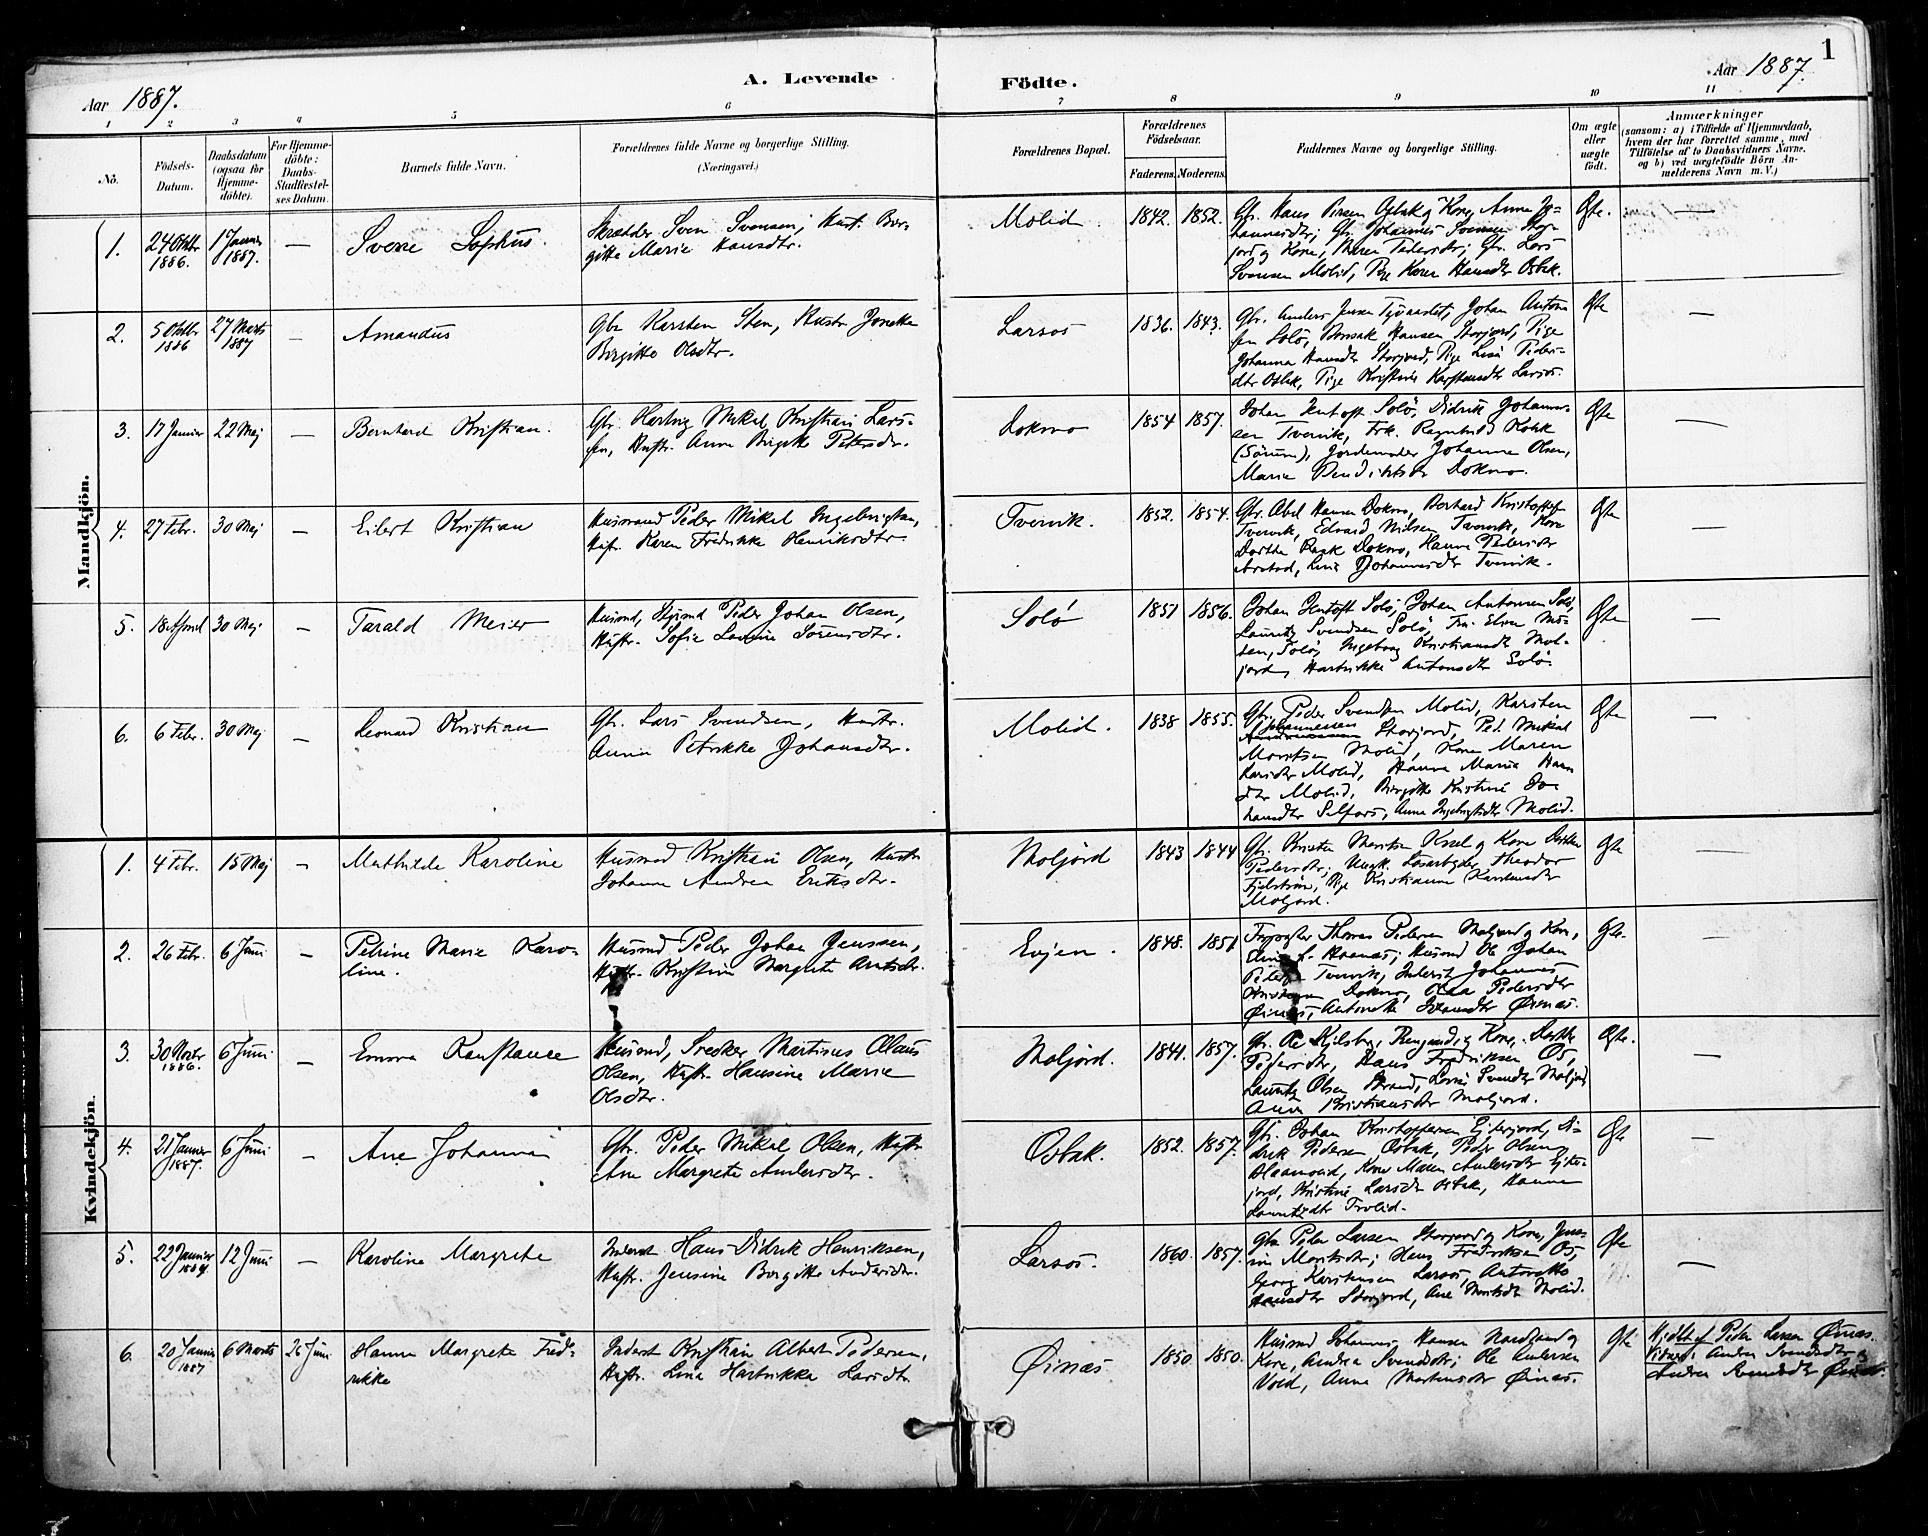 1
A. Levende Födte.
Aar 1887.
Aar 1887.
1 2 3 4 5 6 7 8 9 10 11
No.
Födsels-Datum.
Daabsdatum (ogsaa for Hjemmedöbte).
For Hjemmedöbte: Daabs-Stadfæstelses Datum.
Barnets fulde Navn.
Forældrenes fulde Navne og borgerlige Stilling.
(Næringsvei.)
Forældrenes Bopæl.
Forældrenes Födselsaar.
Faderens. Moderens.
Faddernes Navne og borgerlige Stilling.
Om ægte eller uægte födt.
Anmærkninger
(saasom: a) i Tilfælde af Hjemmedaab, hvem der har forrettet samme, med Tilföielse af to Daabsvidners Navne, og b) ved uægtefödte Börn Anmelderens Navn m. V.)
Mandkjön.
1. 24 Oktbr 1886. 1 Januar 1887. — Sverre Sophus. Skrædder Sven Svensen, Hust. Birgitte Marie Hansdtr. Molid 1842. 1852. Gbr. Hans Persen Osbak og Kone, Anne Johannesdtr; Gbr. Johannes Svensen Storjord og Kone, Maren Pedersdtr; Gbr. Lars Svensen Molid, Pige Karen Hansdtr Osbak. Ægte. —
2. 5 Oktbr 1886 27 Marts 1887 — Amandus Gbr Karsten Sten, Hustr Jonetta Birgitte Olsdtr. Larsos 1836. 1843. Gbr. Anders Jensen, Johan Antonsen Solö, Hansen Storjord, Pige Johanna Hansdtr Storjord, Pige Lina Pedersdtr Osbak, Pige Kristine Karstensdtr Larsos. Ægte —
3. 17 Januar 22 Maj — Bernhard Kristian. Gbr. Hartvig Mikal Kristian Larsen, Hustr. Anne Birgitte Petersdtr. Dokmo 1854 1857. Johan Jentoft Solö, Didrik Johannessen Tvervik, Frk. Ragnhild (Sörum), Jordemoder Johanna Olsen, Maria Bendiktsdtr Dokmo. Ægte —
4. 27 Febr. 30 Maj — Eilert Kristian Husmand Peder Mikal Ingebrigtsen, Hustr. Karen Fredrikke Henriksdtr. Tvervik. 1852. 1854. Gbr. Abel Hansen Dokmo, Kristoffersen Tvervik, Edvard Nilsen Tvervik, Kone Dorthea Dokmo, Hanna Pedersdtr, Lina Johannesdtr Tvervik. Ægte —
5. 18 April 30 Maj — Tarald Meier Husmd, Peder Johan Olsen, Hustr. Sofie Lovise Sörensdtr. Solö 1851 1856. Johan Jentoft Solö, Johan Antonsen Solö, Lauritz Svendsen Solö, Solö, Ingeborg Kristiansdtr Moljord, Hartvikke Antonsdtr Solö. Ægte —
6. 6 Febr. 30 Maj — Leonard Kristian Gbr. Lars Svendsen, Hustr. Anna Petrikke Johansdtr. Molid. 1838 1855. Gbr. Peder Svendsen Molid, Karsten Johannesen Storjord, Ped. Mikal Moritsen Molid, Kone Maren Larsdtr Molid, Hanna Maria Hansdtr Molid, Birgitte Kristine Johansdtr Selfors, Anne Ingebrigtsdtr Molid. Ægte —
Kvindekjön.
1. 4 Febr. 15 Maj — Mathilde Karoline Husmd Kristian Olsen, Hustr Johanna Andrea Eriksdtr. Moljord 1843 1844 Gbr. Moritsen og Kone Dorthea Pedersdtr; Ungk. Lösarbeider Theodor Fjelström, Pige Kristianna Karstensdtr Moljord. Ægte —
2. 26 Febr. 6 Juni — Petrine Marie Karoline. Husmd Peder Johan Jenssen, Hustr. Kristina Margrete Arntsdtr. Evjen. 1848. 1851 Thomas Pedersen Moljord og Kone, Husmd Ole Johan Tvervik, Inderst Johannes Dokmo, Pedersdtr Öinæs, Antonette Öinæs. Ægte. —
3. 30 Novbr 1886. 6 Juni — Emma Konstance Husmd, Snedker Martinus Olaus Olsen, Hustr. Hansine Marie Olsdtr. Moljord. 1841. 1857. Gbr. Ole og Kone, Dorthe Pedersdtr, Hans Fredriksen Os, Lauritz Olsen, Svendsdtr Moljord, Anna Kristiansdtr Moljord. Ægte. —
4. 21 Januar 1887. 6 Juni — Ane Johanna Gbr. Peder Mikal Olsen, Hustr. Ane Margrete Andersdtr. Osbak. 1852. 1857. Gbr. Johan Kristoffersen Eiterjord, Didrik Pedersen Osbak, Peder Olsen, Kone Maren Andersdtr Eiterjord, Kristine Larsdtr Osbak, Hanna Lauritzdtr Trolid. Ægte —
5. 22 Januar 1887 12 Juni — Karoline Margrete Inderst Hans Didrik Henriksen, Hustr. Jensine Birgitte Andersdtr. Larsos. 1860. 1857. Gbr Peder Larsen Storjord og Kone, Moritsdtr; Hans Fredriksen Os, Georg Karstensen Larsos, Antonette Hansdtr Storjord, Ane Moritsdtr Molid. Ægte —
6. 20 Januar 1887 6 Marts 26 Juni Hanna Margrete Fredrikke Inderst Kristian Albert Pedersen, Hustr. Lina Hartvikka Larsdtr. Öinæs 1850 1850. Husmd Johannes Hansen og Kone, Andrea Svendsdtr; Ole Andersen Vold, Anne Martinsdtr Öinæs. Ægte Hjdbt af Peder Larsen Öinæs. Vidner: Andrea Svendsdtr og Svendsdtr Öinæs.